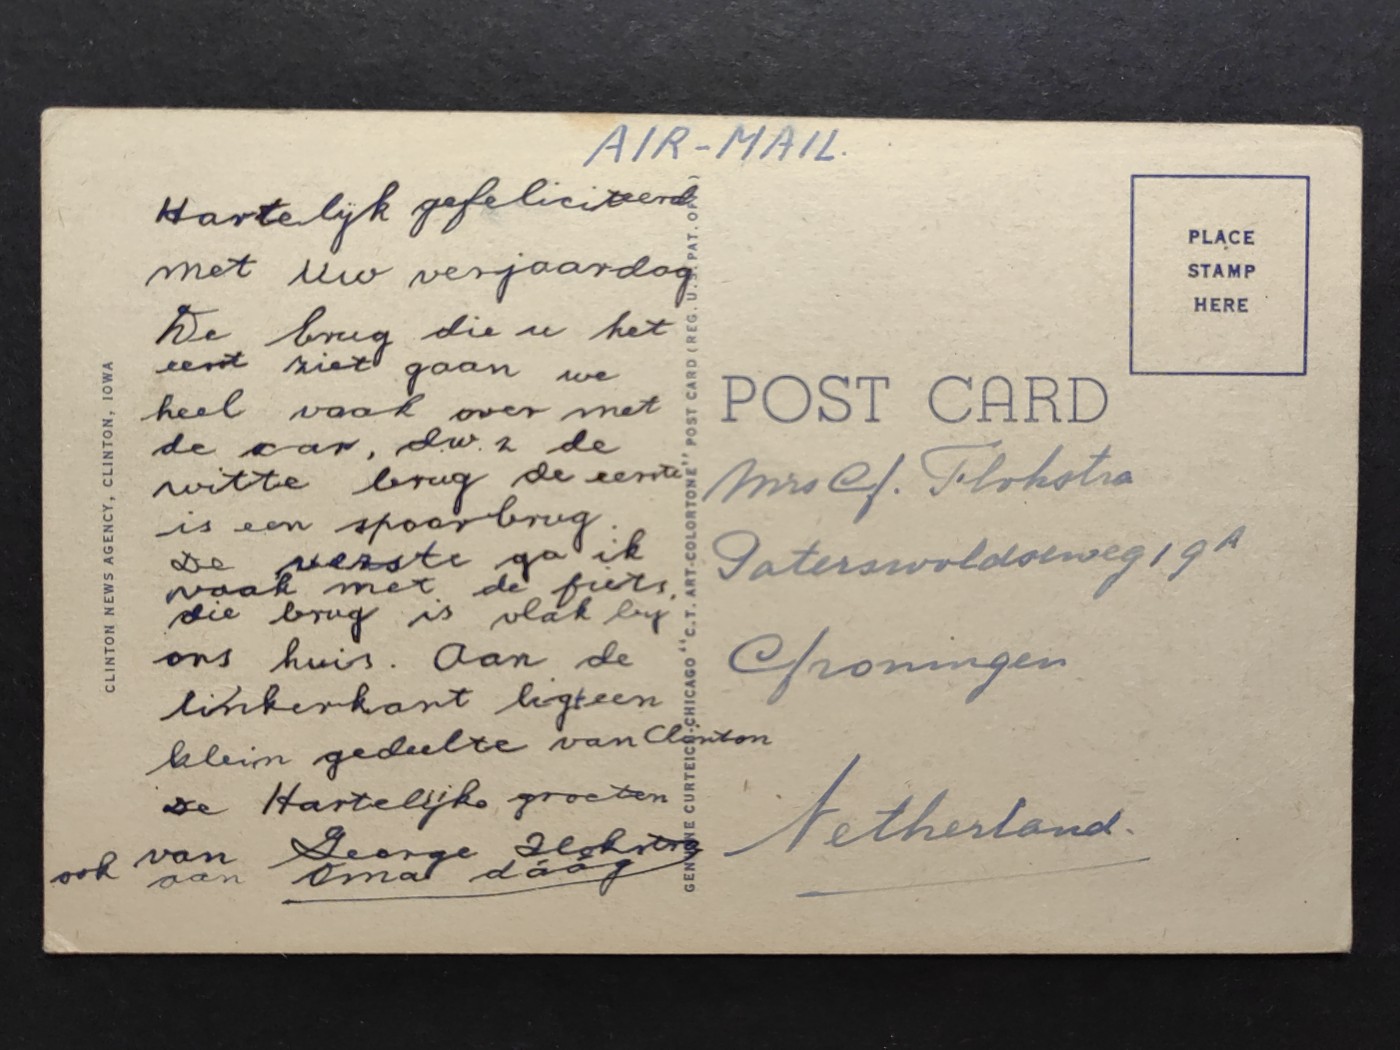 AIR-MAIL.
Hartelijk gefeliciteerd
met Uw verjaardag
De brug die u het
eerst ziet gaan we
heel vaak over met
de car, d.w.z de
witte brug de eerste
is een spoorbrug.
De verste ga ik
vaak met de fiets,
die brug is vlak bij
ons huis. Aan de
linkerkant ligt een
klein gedeelte van Clinton
De Hartelijke groeten
van George Flokstra
ook aan Oma dáág
CLINTON NEWS AGENCY, CLINTON, IOWA
GENUINE CURTEICH-CHICAGO "C.T. ART-COLORTONE" POST CARD (REG. U.S. PAT. OFF.)
PLACE
STAMP
HERE
POST CARD
Mrs G. Flokstra
Paterswoldseweg 19A
Groningen
Netherland.